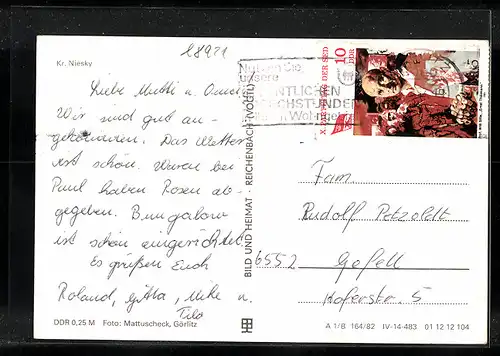 28921
Kr. Niesky
Liebe Mutti u. Omi
Wir sind gut an-
gekommen. Das Wetter
ist schön. Waren bei
Paul haben Rosen ab-
gegeben. Bungalow
ist schön eingerichtet.
Es grüßen Euch
Roland, Gitta, Mike u.
Tilo
DDR 0,25 M Foto: Mattuscheck, Görlitz
BILD UND HEIMAT · REICHENBACH (VOGTL)
Nutzen Sie
unsere
ÖFFENTLICHEN
SPRECHSTUNDEN
X. PARTEITAG DER SED
10
DDR
Fam.
Rudolf Petzoldt
6552 Gefell
Hoferstr. 5
A 1/B 164/82 IV-14-483 01 12 12 104